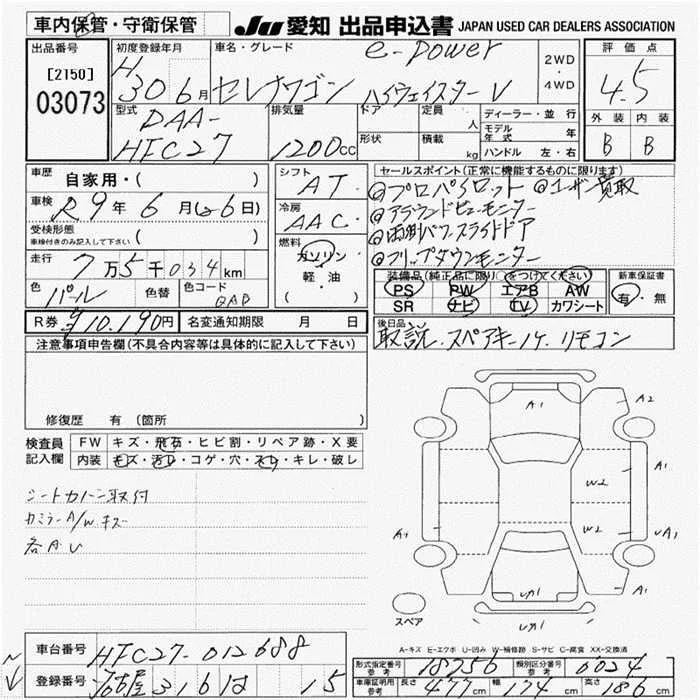 車内保管・守衛保管
JU 愛知 出品申込書 JAPAN USED CAR DEALERS ASSOCIATION
出品番号
[2150]
03073
初度登録年月
H30年6月
車名・グレード
e-power
セレナワゴン ハイウェイスターV
2WD・4WD
評価点
4.5
外装 内装
B B
型式
DAA-
HFC27
排気量
1200cc
ドア
形状
定員 人
積載 kg
ディーラー・並行
モデル年式 年
ハンドル 左・右
車歴 自家用・( )
車検 R9年6月(6日)
受検形態
車検付きのみ記入して下さい ( )
走行 7万5千034km
色 パール 色替 色コード QAB
シフト AT
冷房 AAC
燃料 ガソリン
軽・油
セールスポイント(正常に機能するものに限ります)
◎プロパイロット ◎ユーザー買取
◎アラウンドビューモニター
◎両側パワスライドドア
◎フリップダウンモニター
装備品(純正品に限り○をつけてください)
PS PW エアB AW
SR ナビ TV カワシート
新車保証書
有・無
R券 ¥10.190円 名変通知期限 月 日
後日品
取説.スペアキー1ケ.リモコン
注意事項申告欄(不具合内容等は具体的に記入して下さい)
修復歴 有 (箇所 )
検査員記入欄
FW キズ・飛石・ヒビ割・リペア跡・X要
内装 キズ・汚レ・コゲ・穴・スレ・キレ・破レ
シートカバー取付
カミラーA/Wキズ
各AU
A1
A2
A1
W2
W2
A1
A1
UA1
UA1
スペア
A-キズ E-エクボ U-凹み W-補修跡 S-サビ C-腐食 XX-交換済
車台番号 HFC27-012688
登録番号 名古屋 316 は 15
形式指定番号 参考 18756 類別区分番号 参考 0024
車庫証明用 参考 長さ 477cm 幅 174cm 高さ 186cm